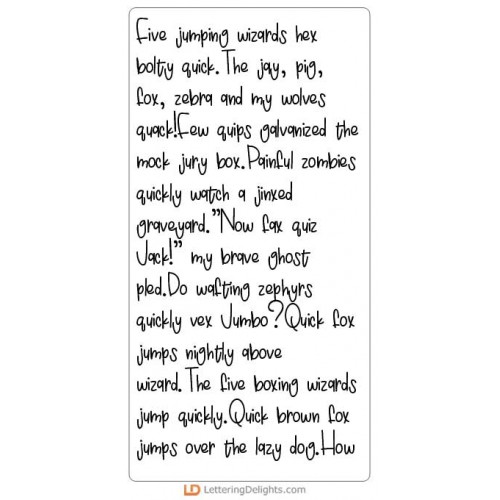 Five jumping wizards hex
bolty quick.The jay, pig,
fox, zebra and my wolves
quack!Few quips galvanized the
mock jury box.Painful zombies
quickly watch a jinxed
graveyard."Now fax quiz
Jack!" my brave ghost
pled.Do wafting zephyrs
quickly vex Jumbo?Quick fox
jumps nightly above
wizard.The five boxing wizards
jump quickly.Quick brown fox
jumps over the lazy dog.How
LD LetteringDelights.com